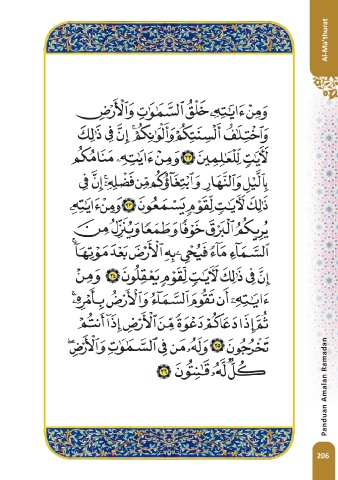 Al-Ma'thurat
وَمِنْ ءَايَٰتِهِۦ خَلْقُ ٱلسَّمَٰوَٰتِ وَٱلْأَرْضِ
وَٱخْتِلَٰفُ أَلْسِنَتِكُمْ وَأَلْوَٰنِكُمْ ۚ إِنَّ فِى ذَٰلِكَ
لَءَايَٰتٍ لِّلْعَٰلِمِينَ ٢٢ وَمِنْ ءَايَٰتِهِۦ مَنَامُكُم
بِٱلَّيْلِ وَٱلنَّهَارِ وَٱبْتِغَآؤُكُم مِّن فَضْلِهِۦٓ ۚ إِنَّ فِى
ذَٰلِكَ لَءَايَٰتٍ لِّقَوْمٍ يَسْمَعُونَ ٢٣ وَمِنْ ءَايَٰتِهِۦ
يُرِيكُمُ ٱلْبَرْقَ خَوْفًا وَطَمَعًا وَيُنَزِّلُ مِنَ
ٱلسَّمَآءِ مَآءً فَيُحْىِۦ بِهِ ٱلْأَرْضَ بَعْدَ مَوْتِهَآ ۚ
إِنَّ فِى ذَٰلِكَ لَءَايَٰتٍ لِّقَوْمٍ يَعْقِلُونَ ٢٤ وَمِنْ
ءَايَٰتِهِۦٓ أَن تَقُومَ ٱلسَّمَآءُ وَٱلْأَرْضُ بِأَمْرِهِۦ ۚ
ثُمَّ إِذَا دَعَاكُمْ دَعْوَةً مِّنَ ٱلْأَرْضِ إِذَآ أَنتُمْ
تَخْرُجُونَ ٢٥ وَلَهُۥ مَن فِى ٱلسَّمَٰوَٰتِ وَٱلْأَرْضِ ۖ
كُلٌّ لَّهُۥ قَٰنِتُونَ ٢٦
Panduan Amalan Ramadan
206